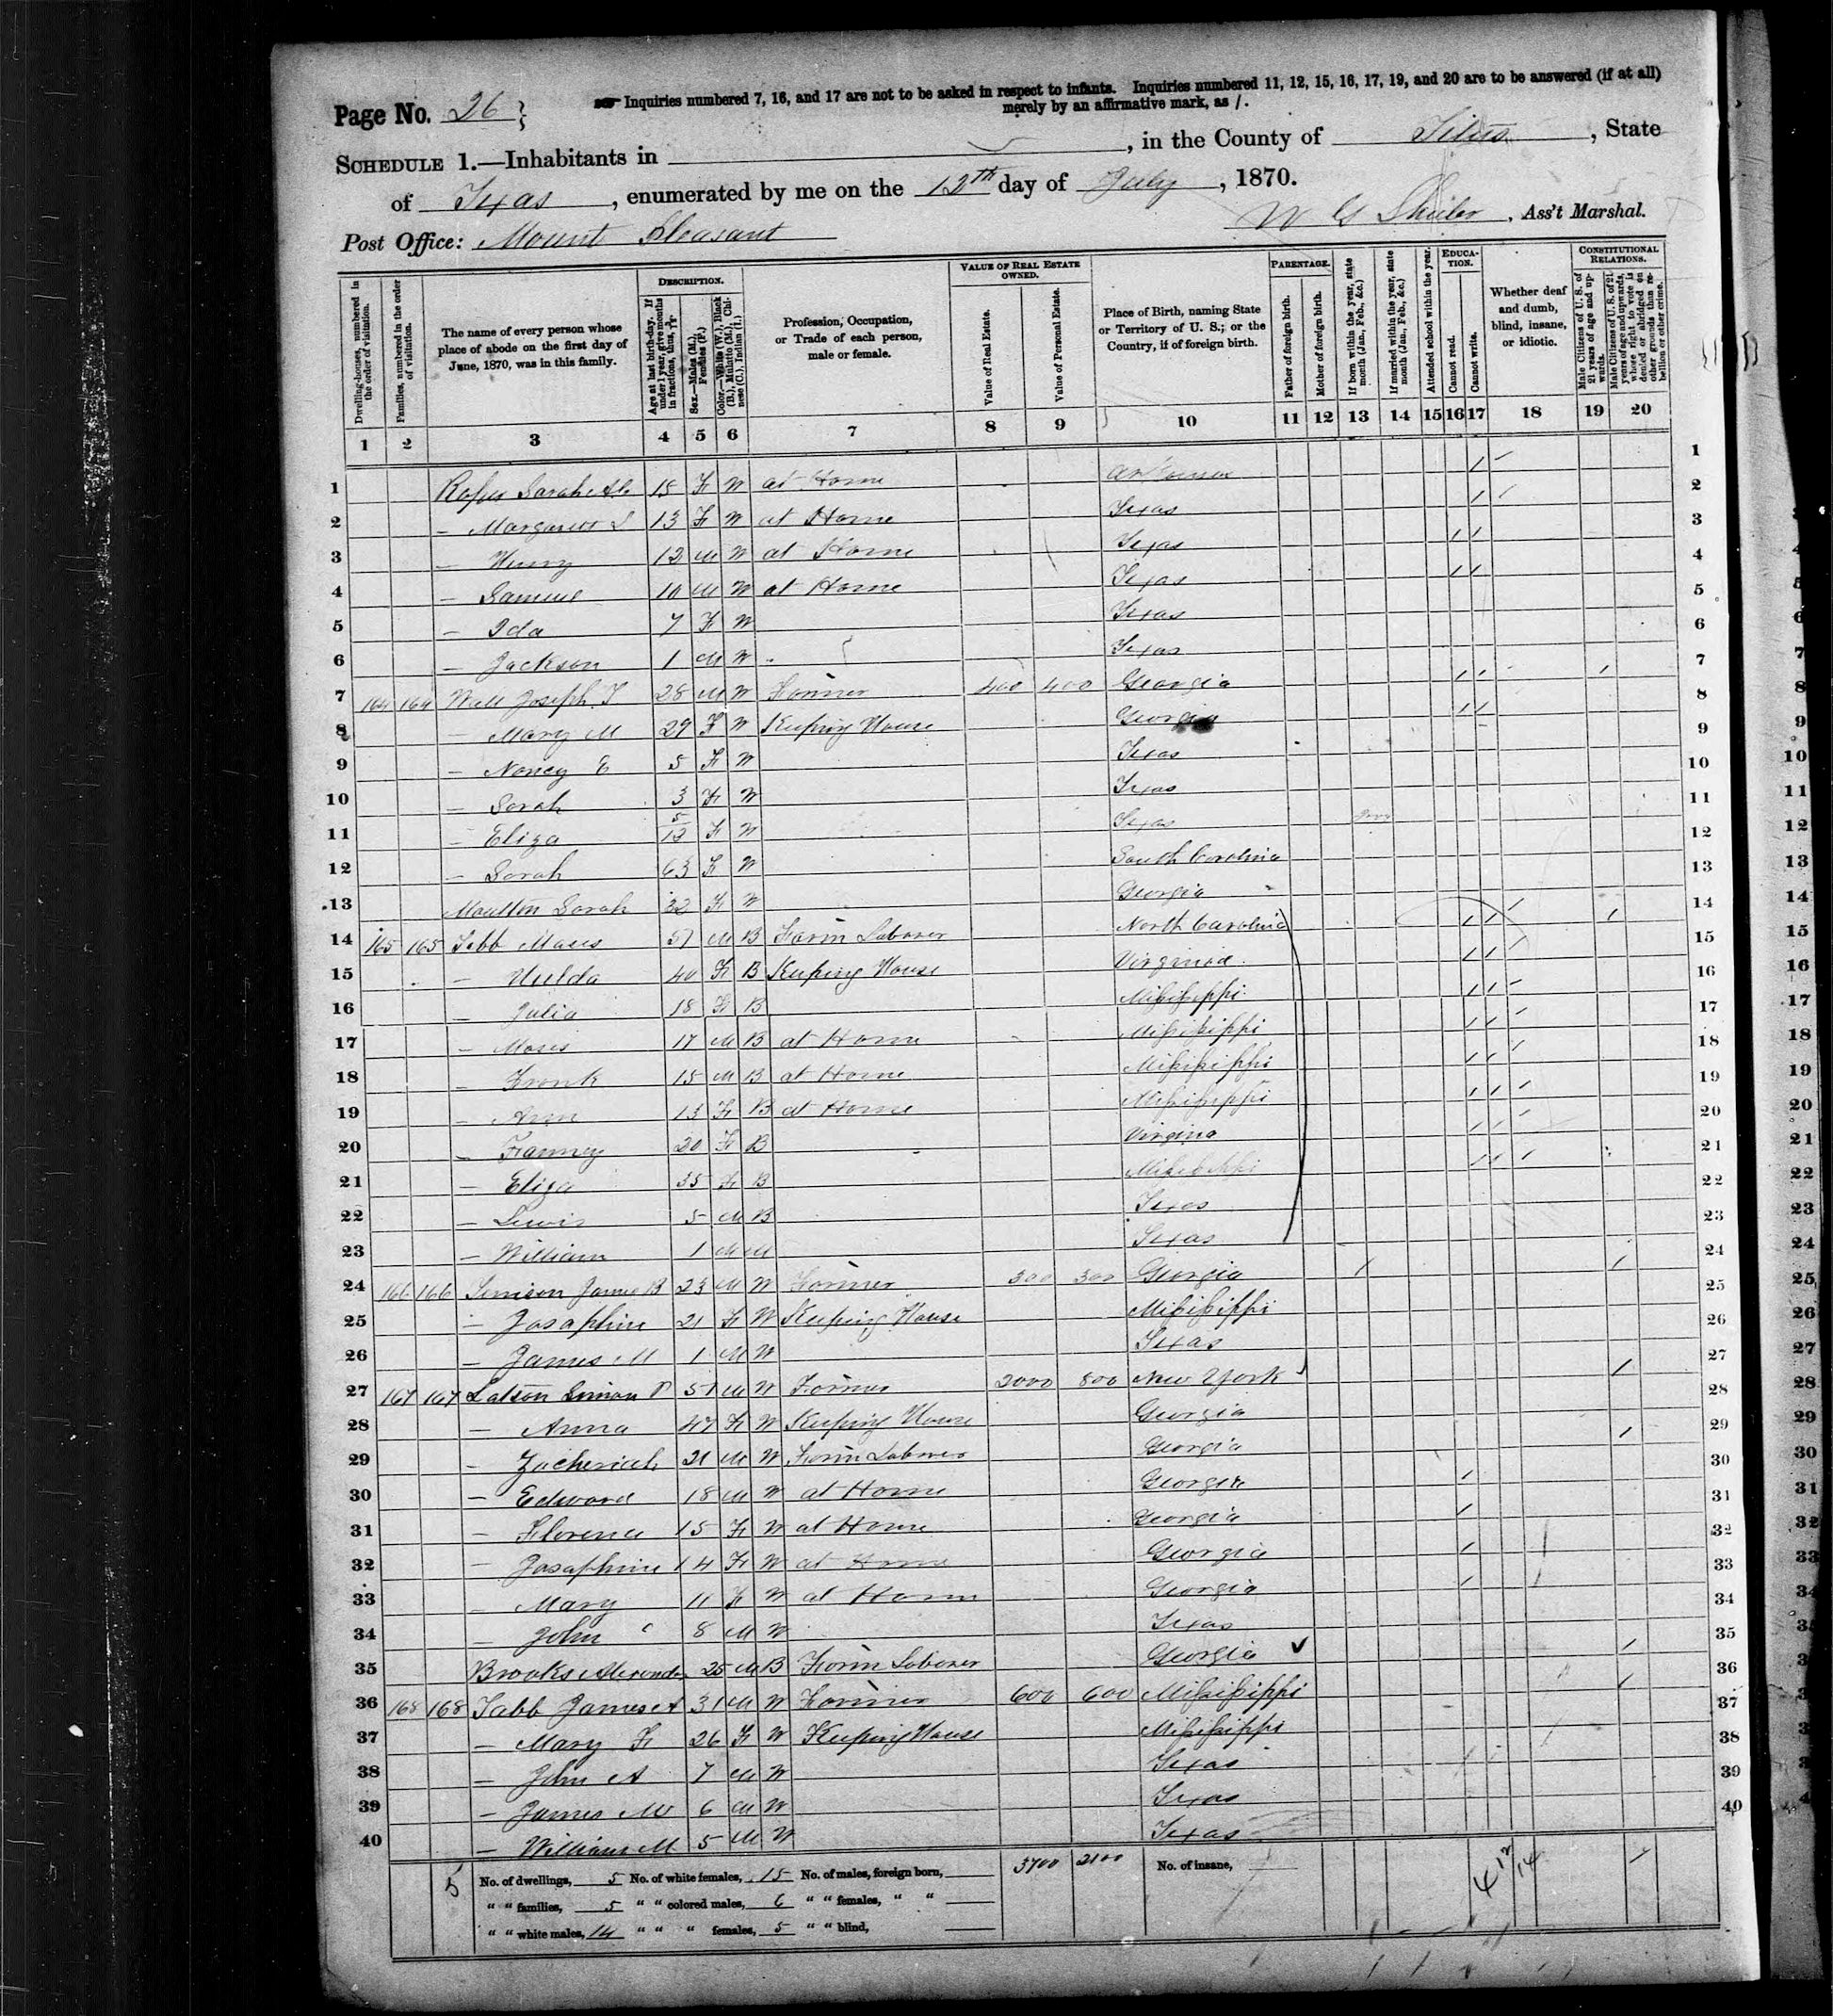 Page No. 26
Inquiries numbered 7, 16, and 17 are not to be asked in respect to infants. Inquiries numbered 11, 12, 15, 16, 17, 19, and 20 are to be answered (if at all)
merely by an affirmative mark, as /.
SCHEDULE 1.—Inhabitants in , in the County of Titus, State
of Texas, enumerated by me on the 12th day of July, 1870.
Post Office: Mount Pleasant W G , Ass't Marshal.
Dwelling-houses, numbered in the order of visitation.
Families, numbered in the order of visitation.
The name of every person whose place of abode on the first day of June, 1870, was in this family.
DESCRIPTION.
Age at last birth-day. If under 1 year, give months in fractions, thus, 3/12
Sex.—Males (M.), Females (F.)
Color.—White (W.), Black (B.), Mulatto (M.), Chinese (C.), Indian (I.)
Profession, Occupation, or Trade of each person, male or female.
VALUE OF REAL ESTATE OWNED.
Value of Real Estate.
Value of Personal Estate.
Place of Birth, naming State or Territory of U. S.; or the Country, if of foreign birth.
PARENTAGE.
Father of foreign birth.
Mother of foreign birth.
If born within the year, state month (Jan., Feb., &c.)
If married within the year, state month (Jan., Feb., &c.)
Attended school within the year.
EDUCATION.
Cannot read.
Cannot write.
Whether deaf and dumb, blind, insane, or idiotic.
CONSTITUTIONAL RELATIONS.
Male Citizens of U. S. of 21 years of age and upwards.
Male Citizens of U. S. of 21 years of age and upwards, whose right to vote is denied or abridged on other grounds than rebellion or other crime.
1 2 3 4 5 6 7 8 9 10 11 12 13 14 15 16 17 18 19 20
1 Sarah 15 F W at Home 1
2 — Margaret 13 F W at Home Texas 2
3 — Henry 12 M W at Home Texas 3
4 — Samuel 10 M W at Home Texas 4
5 — Ida 7 F W Texas 5
6 — Jackson 1 M W Texas 6
7 164 164 Wall Joseph T 28 M W Farmer 400 400 Georgia 7
8 — Mary M 29 F W Keeping House Georgia 8
9 — Nancy E 5 F W Texas 9
10 — Sarah 3 F W Texas 10
11 — Eliza 5/12 F W Texas 11
12 — Sarah 63 F W South Carolina 12
13 Moulton Sarah 32 F W Georgia 13
14 165 165 Tabb Moses 51 M B Farm Laborer North Carolina 14
15 — Hulda 40 F B Keeping House Virginia 15
16 — Julia 18 F B Missippi 16
17 — Moses 17 M B at Home Missippi 17
18 — Frank 15 M B at Home 18
19 — Ann 13 F B at Home 19
20 — Fanney 20 F B Virgina 20
21 — Eliza 35 F B 21
22 — Lewis 5 M B Texas 22
23 — William 1 M M Texas 23
24 166 166 James B 23 M W Farmer 300 300 Georgia 24
25 — Josaphine 21 F W Keeping House 25
26 — James M 1 M W Texas 26
27 167 167 Latson Simon P 51 M W Farmer 2000 800 New York 27
28 — Anna 47 F W Keeping House Georgia 28
29 — Zacheriah 21 M W Farm Laborer Georgia 29
30 — Edward 18 M W at Home Georgia 30
31 — Florence 15 F W at Home Georgia 31
32 — Josaphine 14 F W at Home Georgia 32
33 — Mary 11 F W at Home Georgia 33
34 — John 8 M W Texas 34
35 Brooks Alexander 25 M B Farm Laborer Georgia 35
36 168 168 Tabb James A 31 M W Farmer 600 600 36
37 — Mary F 26 F W Keeping House 37
38 — John A 7 M W Texas 38
39 — James M 6 M W Texas 39
40 — William M 5 M W Texas 40
5 No. of dwellings, 5 No. of white females, 15 No. of males, foreign born, 3700 2100 No. of insane,
" " families, 5 " " colored males, 6 " " females, " "
" " white males, 14 " " " females, 5 " " blind,